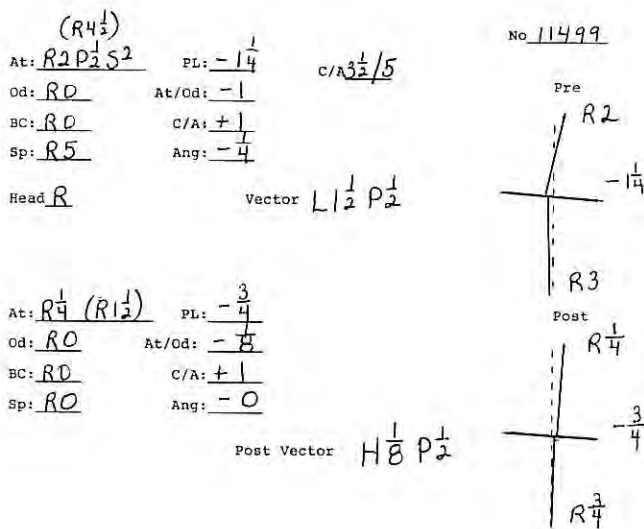 (R4½)
No 11499
At: R2P½S² PL: -1¼ C/A 3½/5
Od: RO At/Od: -1
BC: RO C/A: +1
Sp: R5 Ang: -¼
Head R Vector L1½ P½
Pre
R2
-1¼
R3
At: R¼ (R1½) PL: -¾
Od: RO At/Od: -⅛
BC: RO C/A: +1
Sp: RO Ang: -0
Post Vector H⅛ P½
Post
R¼
-¾
R¾